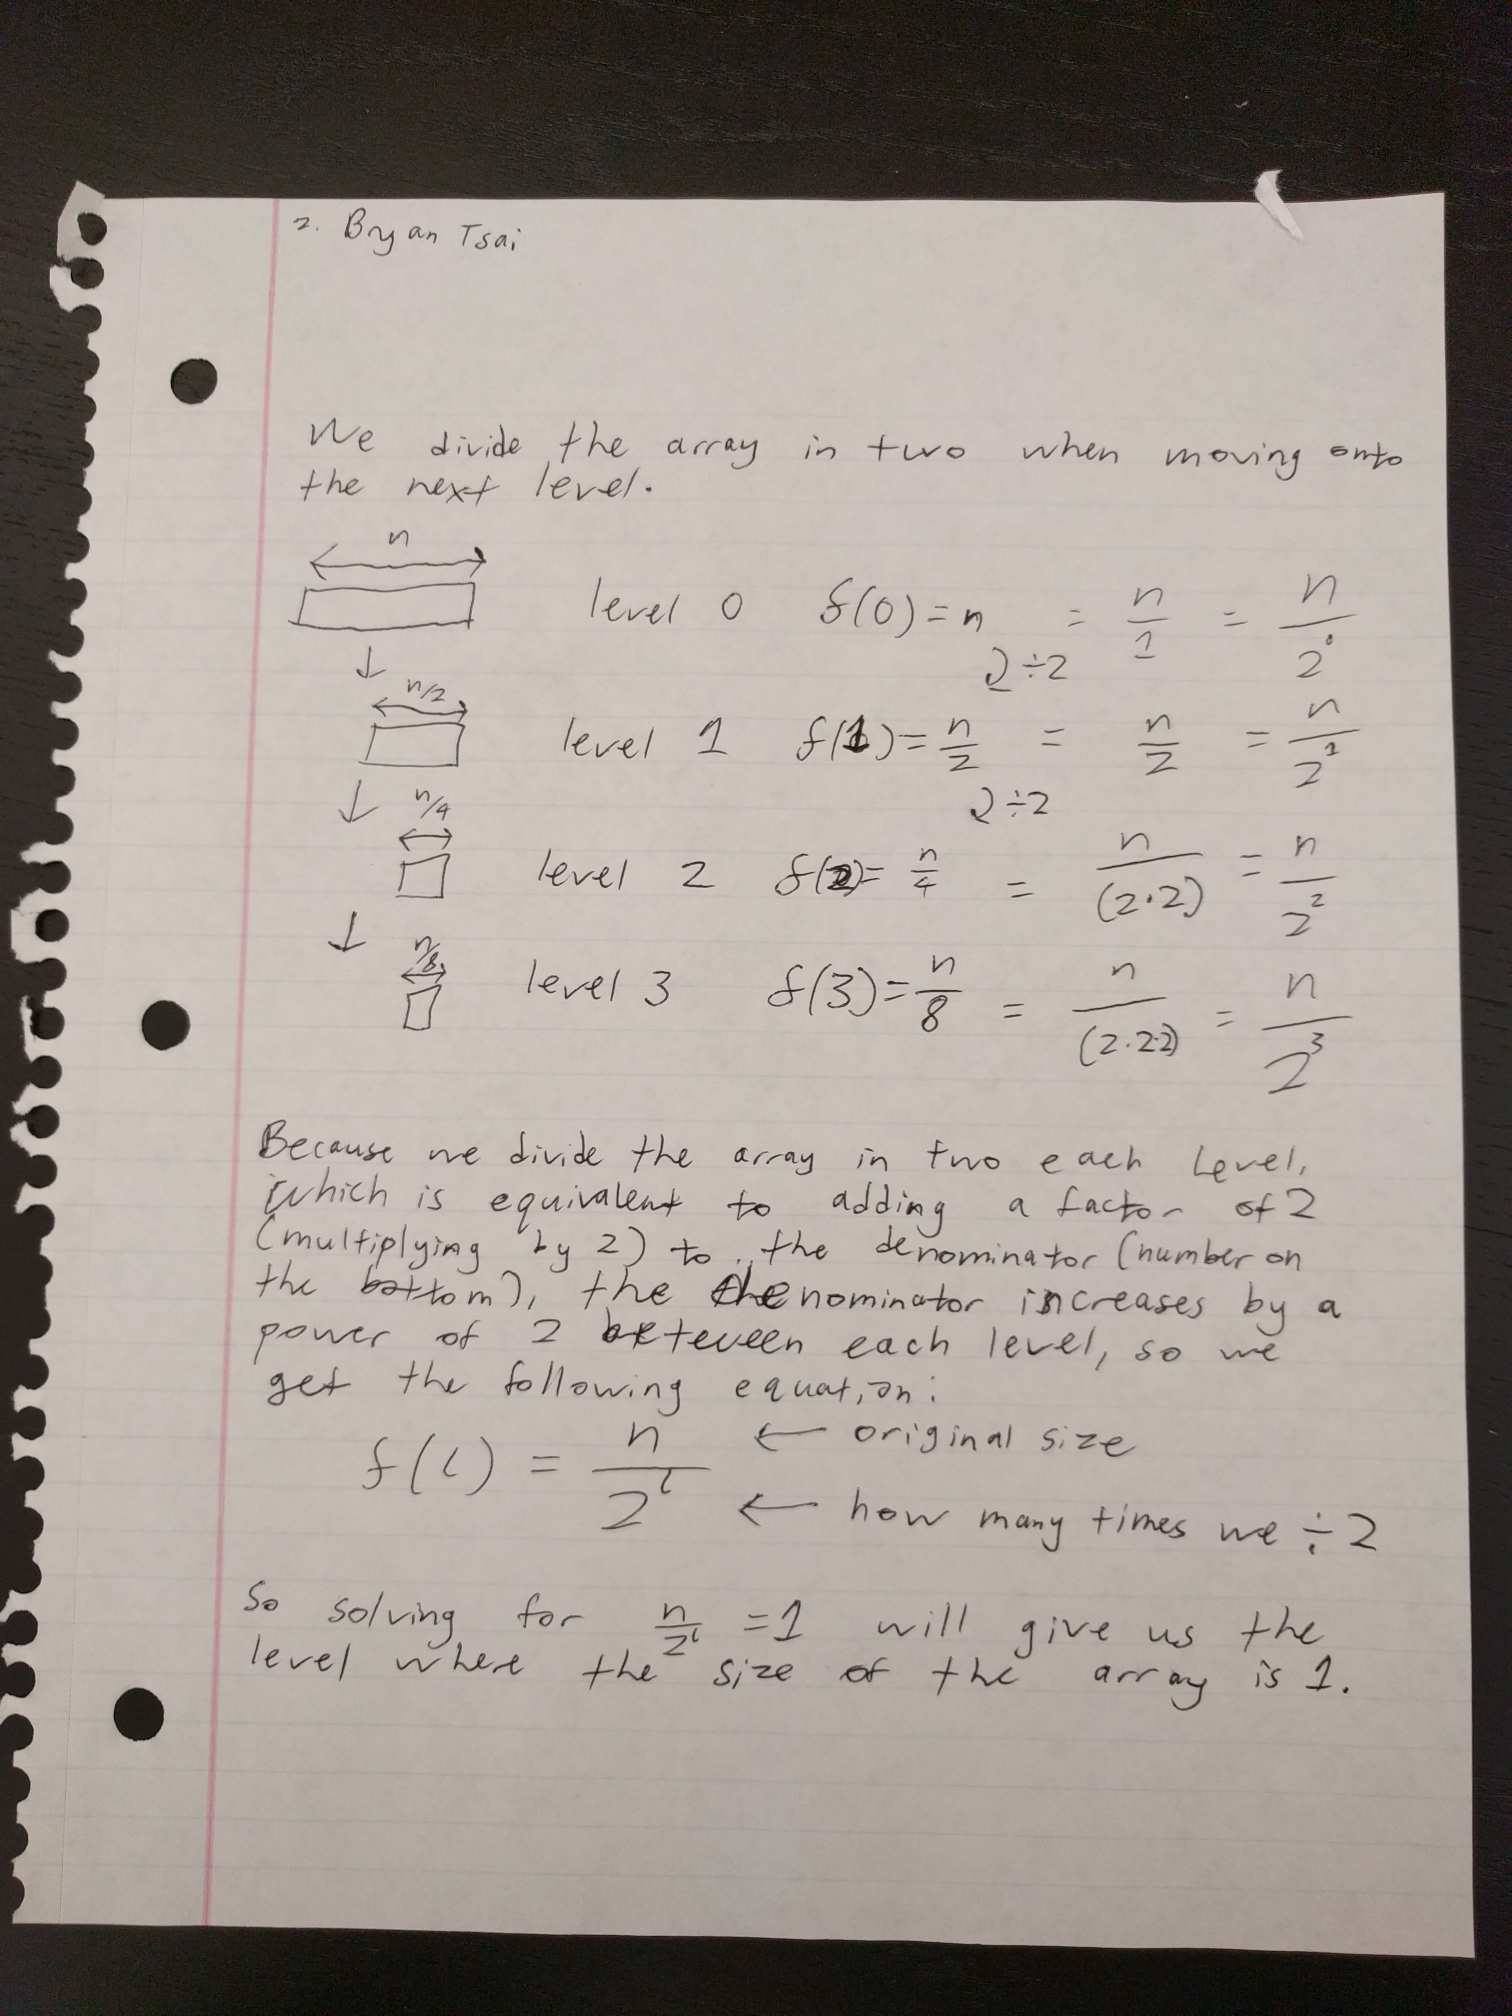 2. Bryan Tsai
We divide the array in two when moving onto
the next level.
n
level 0 f(0) = n = n/1 = n/2⁰
↓ ÷2
n/2
level 1 f(1) = n/2 = n/2 = n/2¹
↓ ÷2
n/4
level 2 f(2) = n/4 = n/(2·2) = n/2²
↓
n/8
level 3 f(3) = n/8 = n/(2·2·2) = n/2³
Because we divide the array in two each level,
which is equivalent to adding a factor of 2
(multiplying by 2) to the denominator (number on
the bottom), the denominator increases by a
power of 2 between each level, so we
get the following equation:
f(l) = n/2ˡ ← original size
← how many times we ÷ 2
So solving for n/2ˡ = 1 will give us the
level where the size of the array is 1.